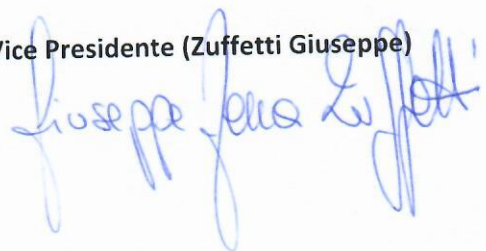 Vice Presidente (Zuffetti Giuseppe)
Giuseppe Zuffetti